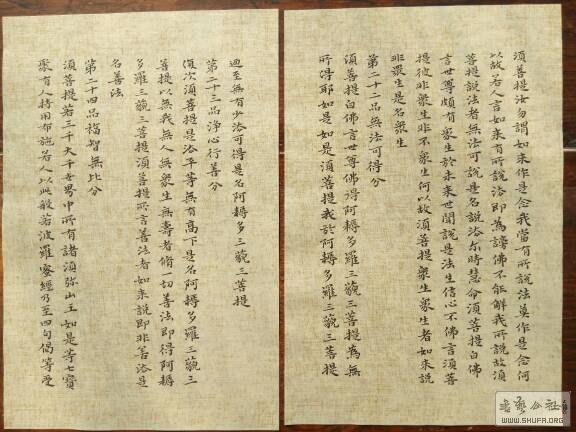 須菩提汝勿謂如來作是念我當有所說法莫作是念何
以故若人言如來有所說法即為謗佛不能解我所說故須
菩提說法者無法可說是名說法爾時慧命須菩提白佛
言世尊頗有眾生於未來世聞說是法生信心不佛言須菩
提彼非眾生非不眾生何以故須菩提眾生眾生者如來說
非眾生是名眾生
第二十二品無法可得分
須菩提白佛言世尊佛得阿耨多羅三藐三菩提為無
所得耶如是如是須菩提我於阿耨多羅三藐三菩提
乃至無有少法可得是名阿耨多羅三藐三菩提
第二十三品淨心行善分
復次須菩提是法平等無有高下是名阿耨多羅三藐三
菩提以無我無人無眾生無壽者脩一切善法即得阿耨
多羅三藐三菩提須菩提所言善法者如來說即非善法是
名善法
第二十四品福智無比分
須菩提若三千大千世界中所有諸須彌山王如是等七寶
聚有人持用布施若人以此般若波羅蜜經乃至四句偈等受
WWW.SHUFA.ORG